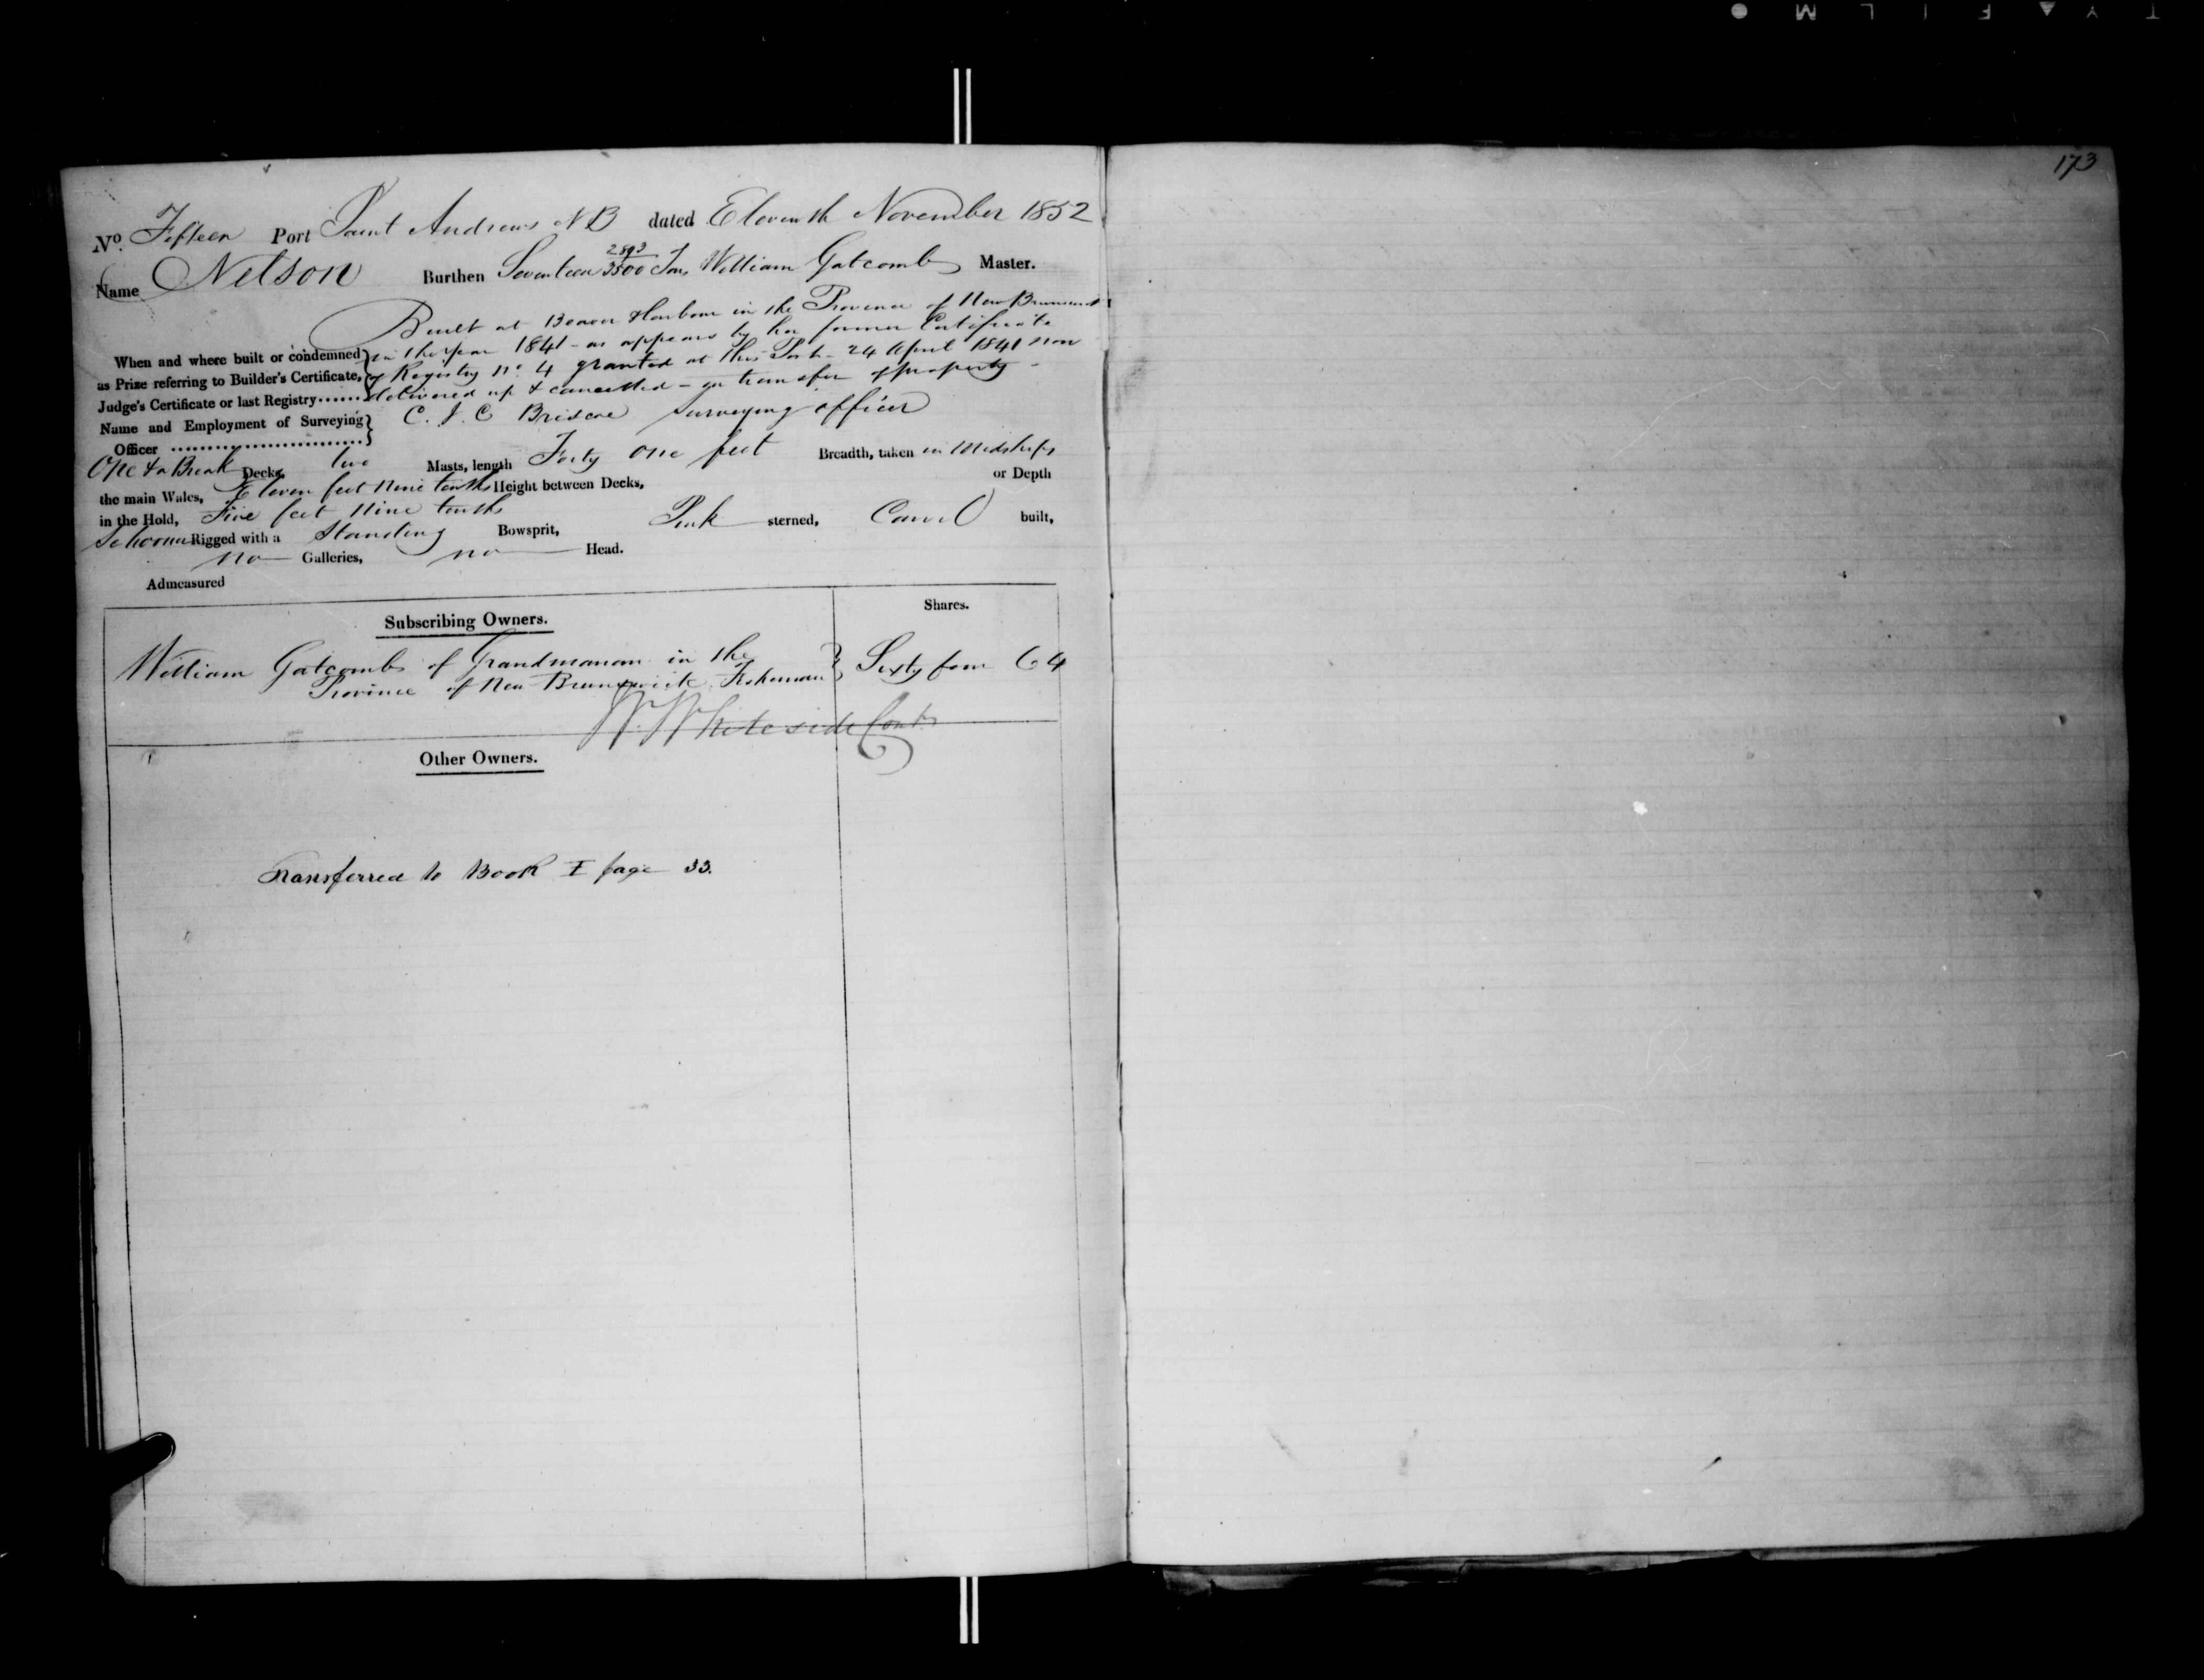 173
No. Fifteen Port Saint Andrews NB dated Eleventh November 1852
Name Nelson Burthen Seventeen 2893/3500 Tons William Gatcomb Master.
Built at Beaver Harbour in the Province of New Brunswick
When and where built or condemned in the year 1841 - as appears by her former Certificate
as Prize referring to Builder's Certificate, of Registry No. 4 granted at this Port - 24 April 1841 now
Judge's Certificate or last Registry...... delivered up & cancelled - on transfer of property -
Name and Employment of Surveying C. J. C Briscoe Surveying officer
Officer ..............................
One & a Break Decks, two Masts, length Forty one feet Breadth, taken in Midships
the main Wales, Eleven feet Nine tenths Height between Decks, or Depth
in the Hold, Five feet Nine tenths
Schooner Rigged with a Standing Bowsprit, Pink sterned, Carvel built,
no Galleries, no Head.
Admeasured
Subscribing Owners. Shares.
William Gatcomb of Grandmanan in the
Province of New Brunswick Fisherman } Sixty four 64
W. Whiteside Contr
Other Owners.
Transferred to Book I page 33.